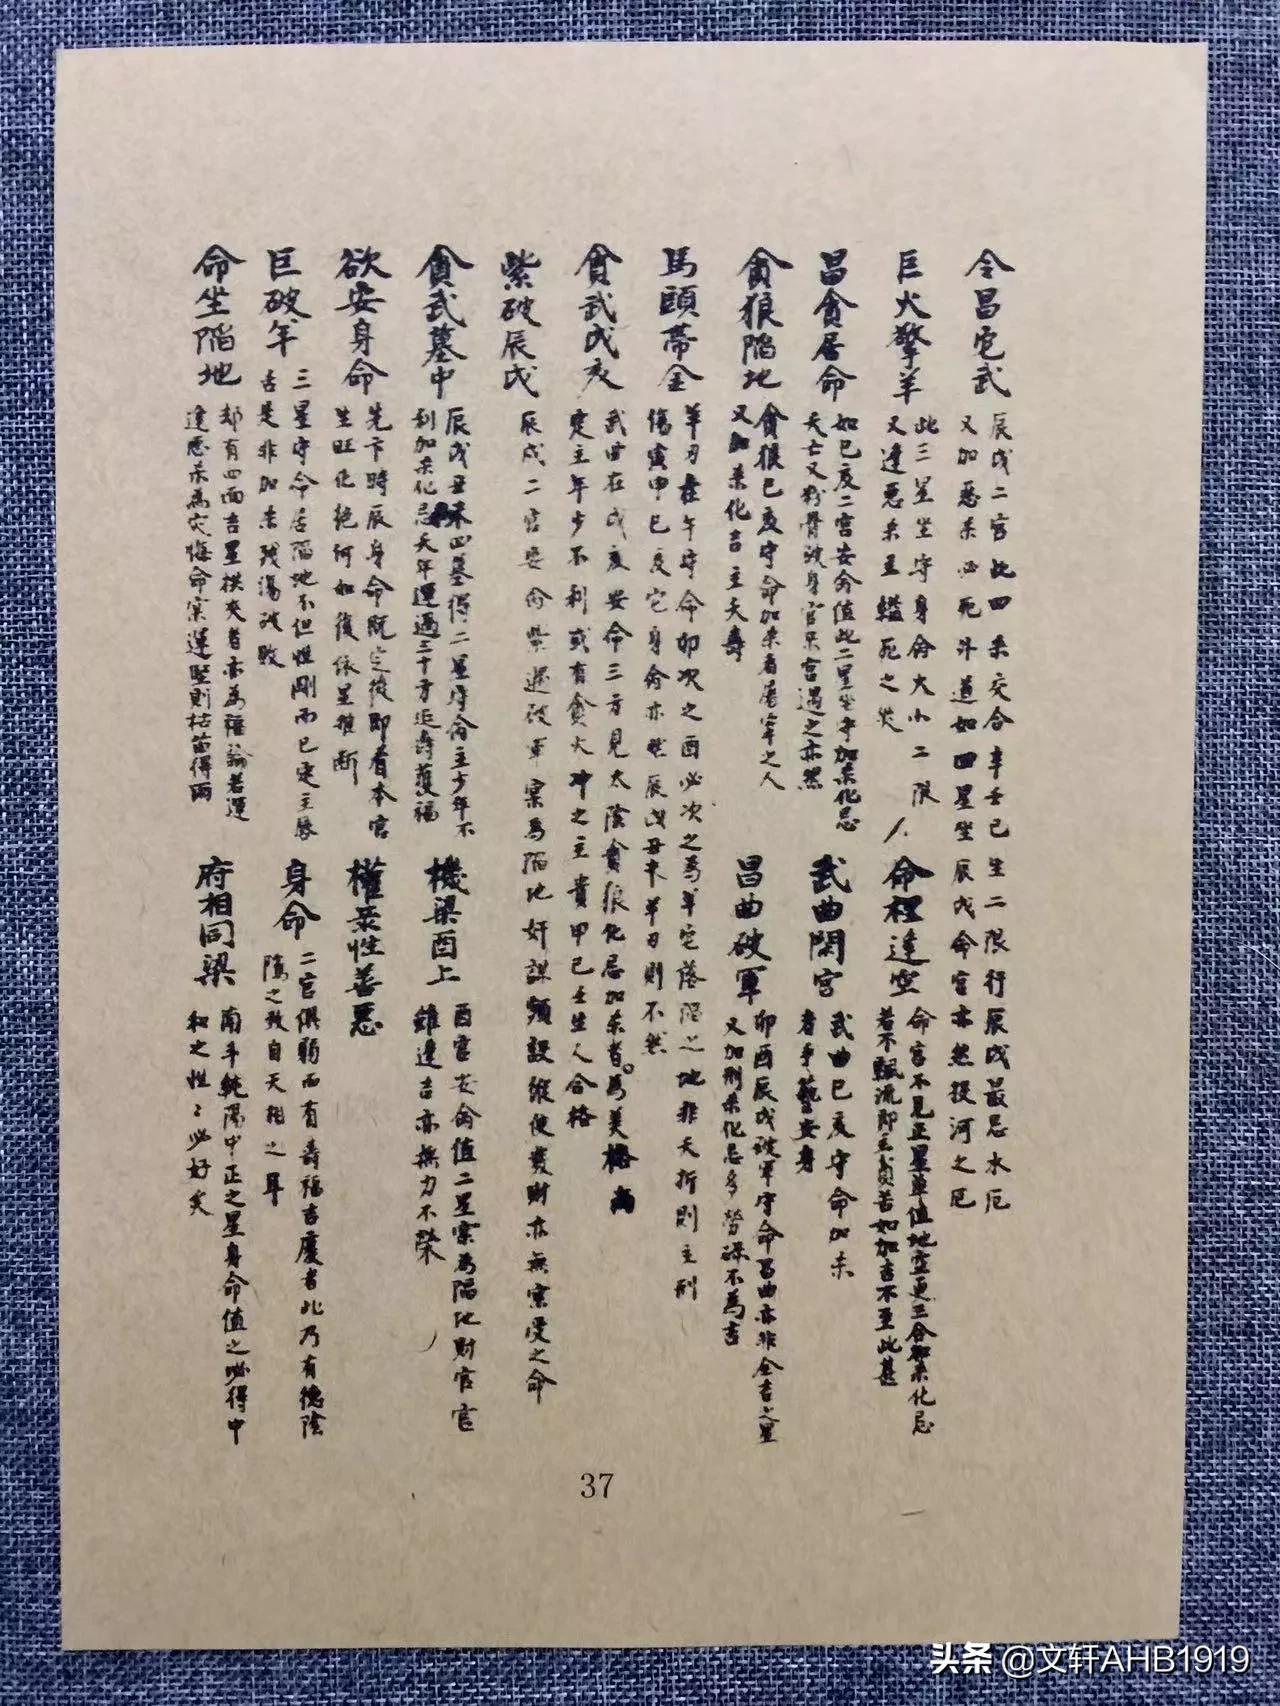 令昌它武
辰戌二宫此四杀交合辛壬己生二限行辰戌最忌水厄
又加恶杀必死外道如四星坐辰戌命宫亦然投河之厄
巨火擎羊
此三星坐守身命大小二限
又逢恶杀主缢死之灾
命裡逢空
命宫不见正星单值地空更三合加杀化忌
若不飄流即主贫苦如加吉不至此甚
昌貪居命
如巳亥二宫安命值此二星坐守加杀化忌
夭亡又粉骨破身官杀宫遇之亦然
武曲閑宫
武曲巳亥守命加杀
者手藝安身
貪狼陷地
貪狼巳亥守命加杀者屠宰之人
又加杀化吉主夭壽
昌曲破軍
卯酉辰戌破軍守命昌曲亦非全吉之星
又加刑杀化忌多劳碌不為吉
馬頭帶金
羊刃在午守命卯次之酉必次之為羊它落陷之地非夭折則主刑
傷寅申巳亥它身命亦然辰戌丑未羊刃則不然
貪武戌亥
武曲在戌亥安命三方見太陰貪狼化忌加杀者。為美格尚
定主年少不利或有貪火冲之主貴甲己壬生人合格
紫破辰戌
辰戌二宫安命紫遇破軍寔為陷地奸謀頻設縱使發財亦無寔受之命
貪武墓中
辰戌丑未四墓得二星守命主少年不
利加杀化忌夭年運過三十方延壽獲福
機梁酉上
酉宫安命值二星寔為陷地財官官
雖逢吉亦無力不榮
欲安身命
先卞時辰身命既定後即看本宫
生旺化绝何如復依星推断
權杀性善恶
巨破羊
三星守命居陷地不但性剛而已定主唇
舌是非加杀残傷破敗
身命
二宫俱弱而有壽福吉慶者此乃有德陰
隲之致自天相之耳
命坐陷地
却有四面吉星拱夾者亦為福論若運
逢恶杀為灾悔命寔運堅則枯苗得雨
府相同梁
南斗純陽中正之星身命值之必得中
和之性〻必好矣
37
头条 @文轩AHB1919